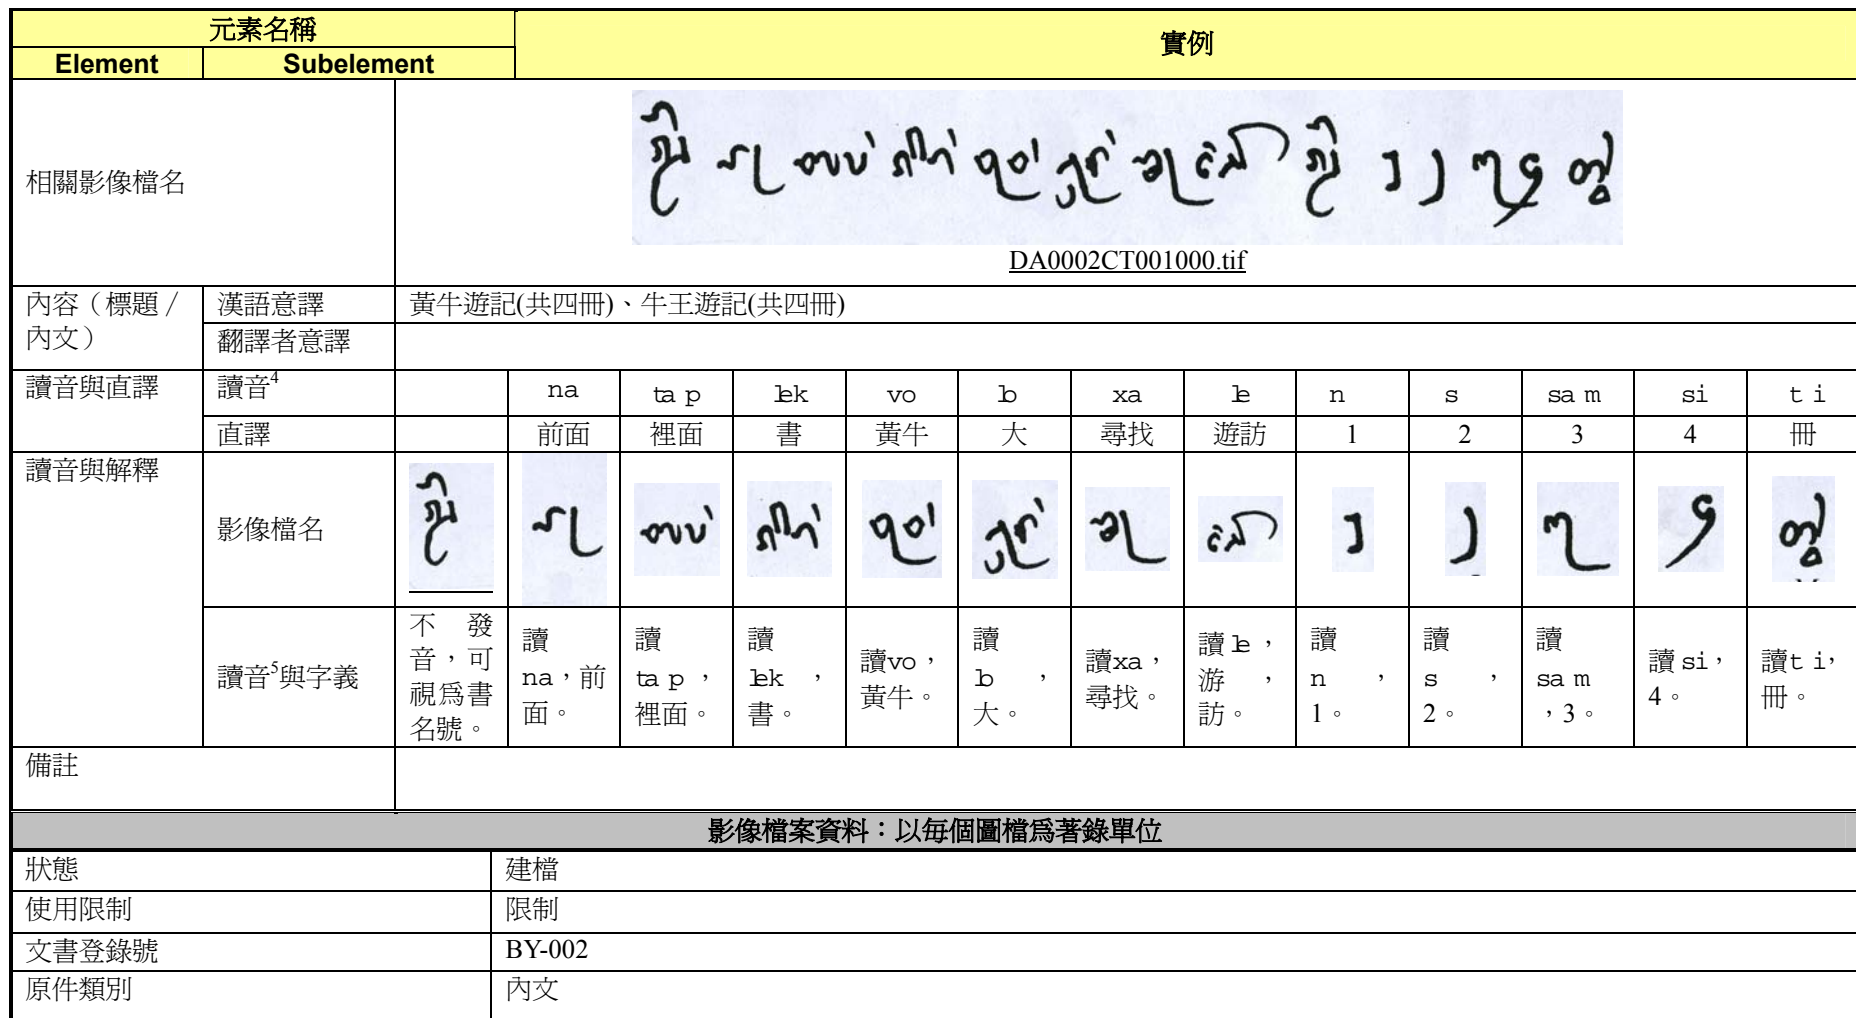 元素名稱 實例
Element Subelement
相關影像檔名
DA0002CT001000.tif
內容（標題／內文） 漢語意譯 黃牛遊記(共四冊)、牛王遊記(共四冊)
翻譯者意譯
讀音與直譯 讀音4 na ta p lek vo lo xa le n s sa m si t i
直譯 前面 裡面 書 黃牛 大 尋找 遊訪 1 2 3 4 冊
讀音與解釋 影像檔名
讀音5與字義 不發音，可視爲書名號。 讀na，前面。 讀ta p，裡面。 讀lek，書。 讀vo，黃牛。 讀lo，大。 讀xa，尋找。 讀le，游訪。 讀n，1。 讀s，2。 讀sa m，3。 讀si，4。 讀t i，冊。
備註
影像檔案資料：以每個圖檔爲著錄單位
狀態 建檔
使用限制 限制
文書登錄號 BY-002
原件類別 內文